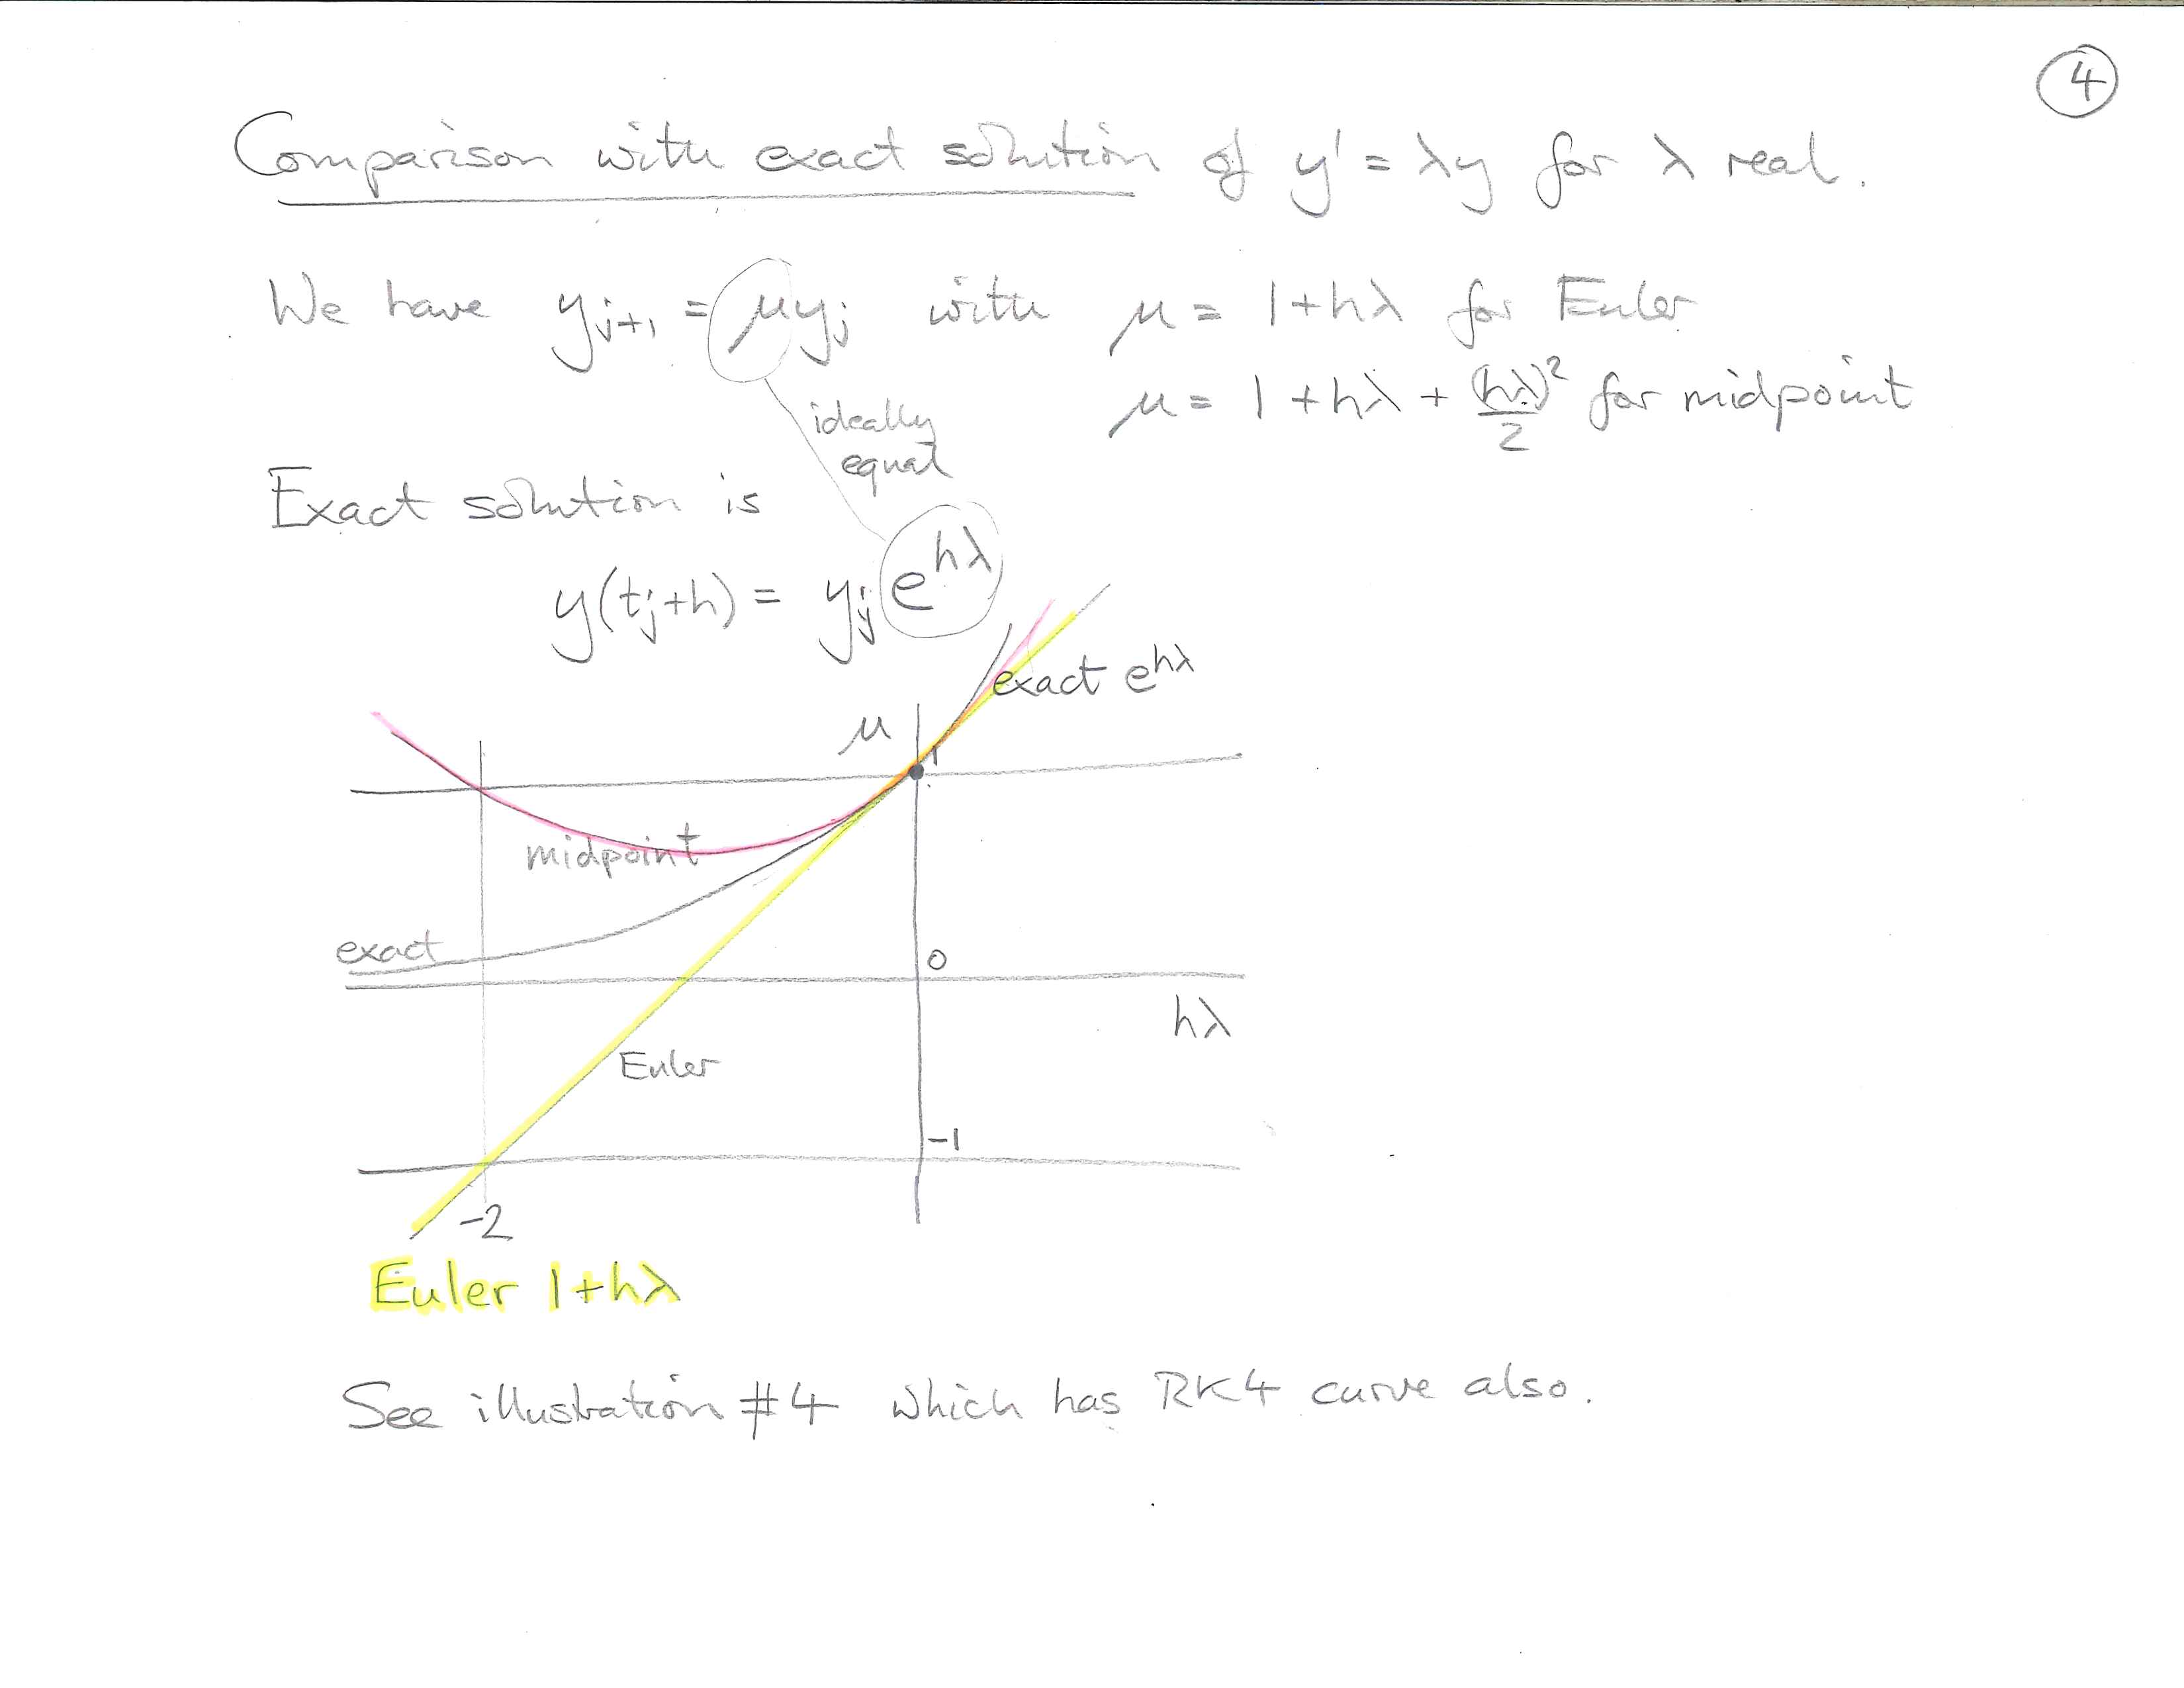 4
Comparison with exact solution of y' = λy for λ real.
We have y_{j+1} = μy_j with μ = 1+hλ for Euler
μ = 1 + hλ + (hλ)²/2 for midpoint
ideally
equal
Exact solution is
y(t_j+h) = y_j e^{hλ}
exact e^{hλ}
μ
1
midpoint
exact
0
hλ
Euler
-1
-2
Euler 1+hλ
See illustration #4 which has RK4 curve also.